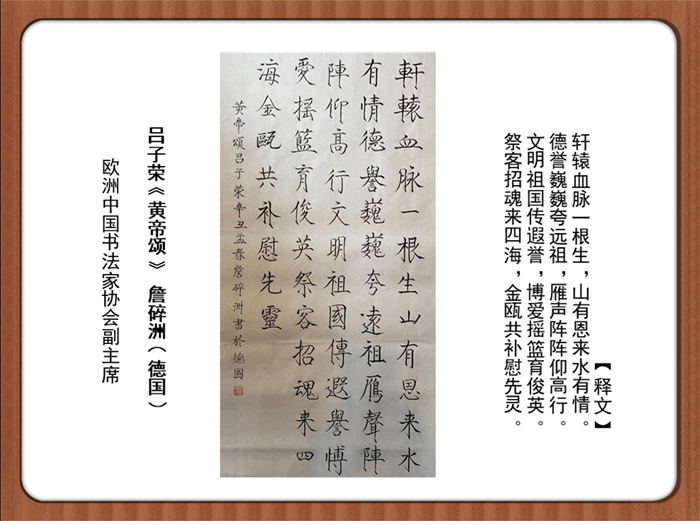 【释文】
轩辕血脉一根生，山有恩来水有情。
德誉巍巍夸远祖，雁声阵阵仰高行。
文明祖国传遐誉，博爱摇篮育俊英。
祭客招魂来四海，金瓯共补慰先灵。
軒轅血脉一根生山有恩来水
有情德譽巍巍夸遠祖鴈聲陣
陣仰高行文明祖國傳遐譽博
愛摇籃育俊英祭客招魂来四
海金甌共补慰先靈
黄帝頌吕子荣辛丑孟春詹碎洲書於德國
吕子荣《黄帝颂》 詹碎洲（德国）
欧洲中国书法家协会副主席